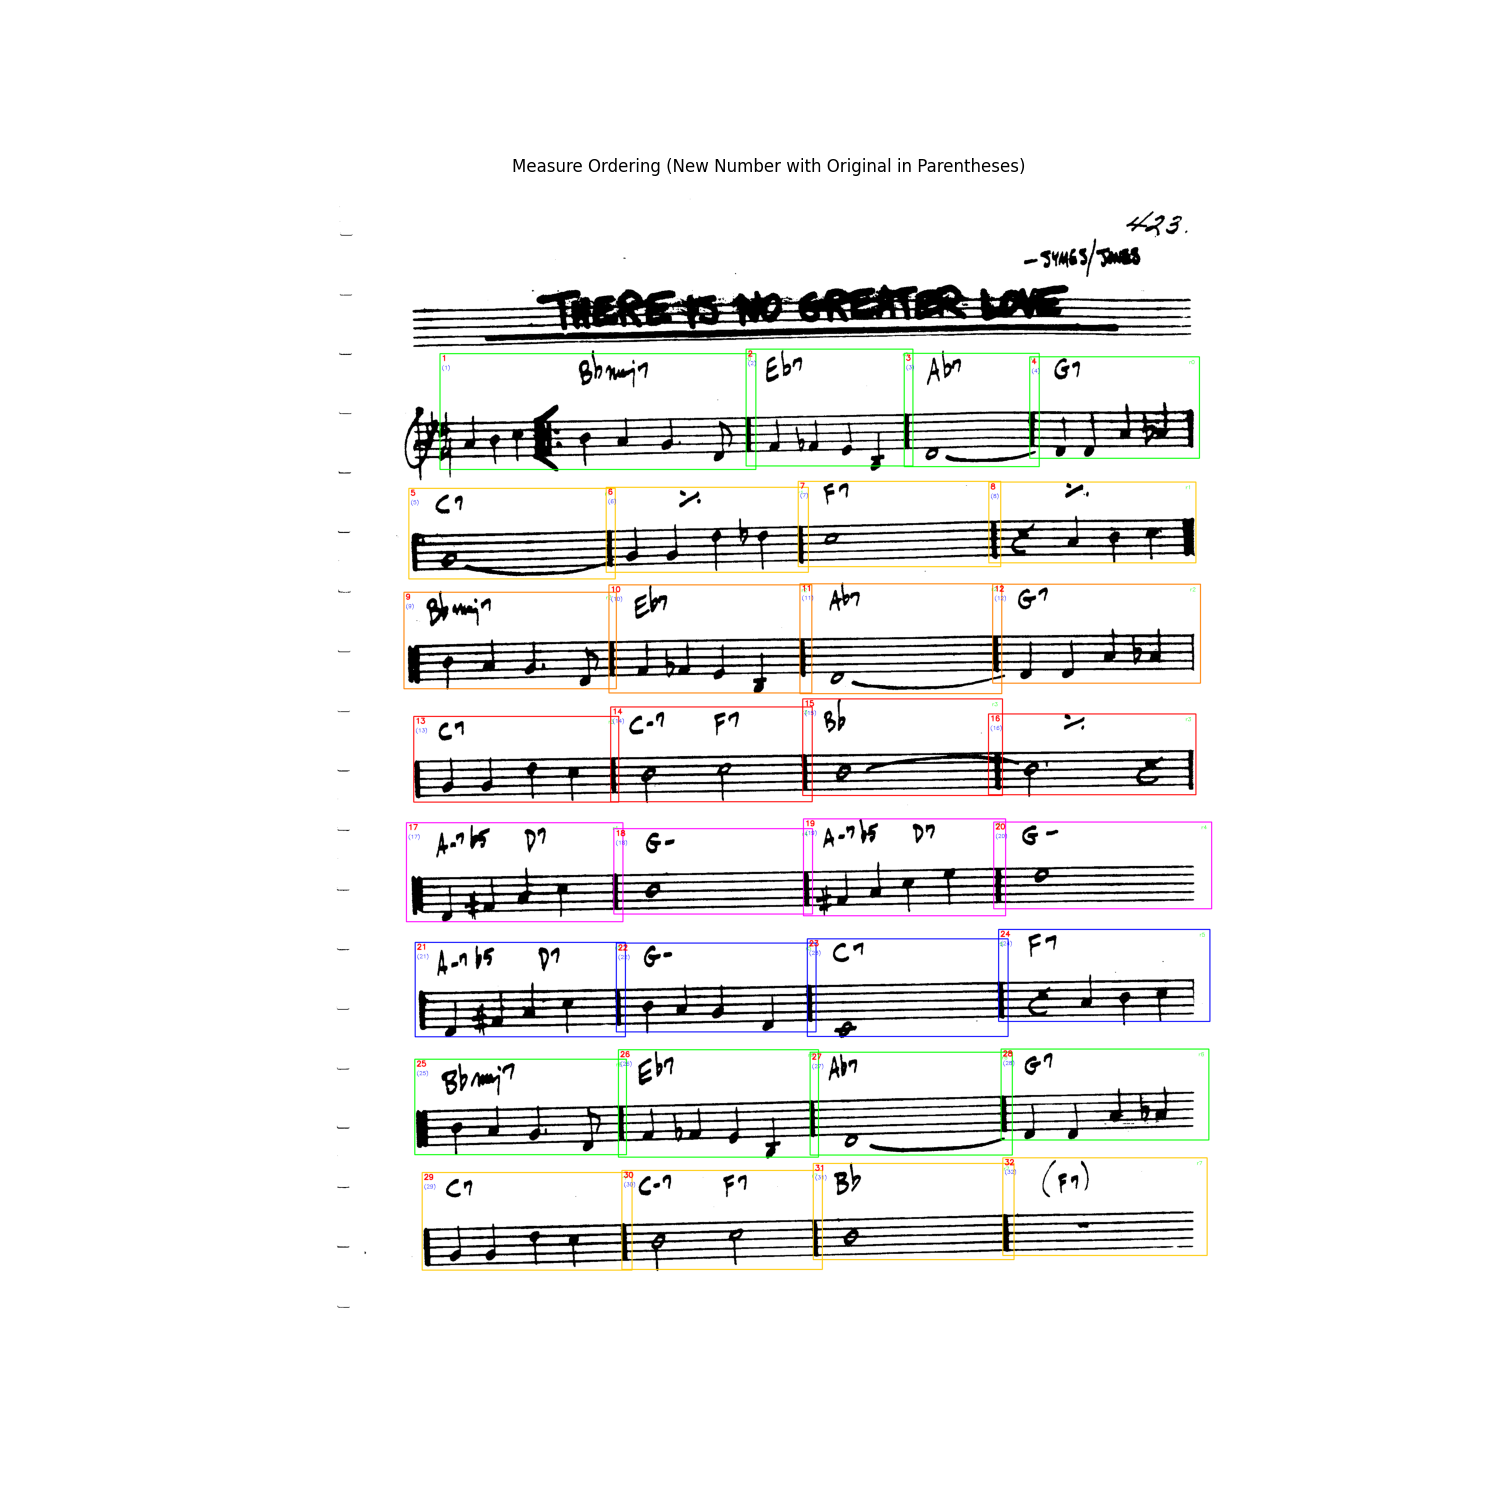 Measure Ordering (New Number with Original in Parentheses)
423.
- SYMES/JONES
THERE IS NO GREATER LOVE
1 (1) Bbmaj7 2 (2) Eb7 3 (3) Ab7 4 (4) G7
5 (5) C7 6 (6) ٪ 7 (7) F7 8 (8) ٪
9 (9) Bbmaj7 10 (10) Eb7 11 (11) Ab7 12 (12) G7
13 (13) C7 14 (14) C-7 F7 15 (15) Bb 16 (16) ٪
17 (17) A-7b5 D7 18 (18) G- 19 (19) A-7b5 D7 20 (20) G-
21 (21) A-7b5 D7 22 (22) G- 23 (23) C7 24 (24) F7
25 (25) Bbmaj7 26 (26) Eb7 27 (27) Ab7 28 (28) G7
29 (29) C7 30 (30) C-7 F7 31 (31) Bb 32 (32) (F7)